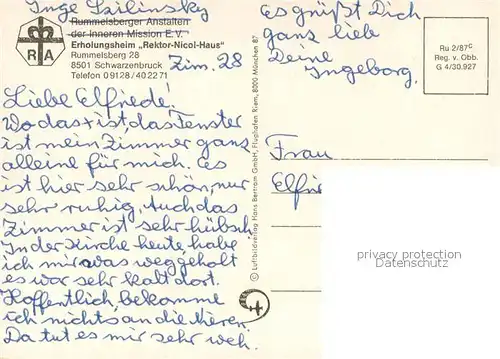 Inge Szilinsky
Rummelsberger Anstalten
der Inneren Mission E.V.
R A
Erholungsheim „Rektor-Nicol-Haus"
Rummelsberg 28
8501 Schwarzenbruck
Telefon 09128/40 22 71
Zim. 28
Liebe Elfriede!
Wo das x ist, das Fenster
ist mein Zimmer ganz
alleine für mich. Es
ist hier sehr schön, nur
sehr ruhig, Auch das
Zimmer ist sehr hübsch
In der Kirche heute, habe
ich mir was weggeholt
es war sehr kalt dort.
Hoffentlich bekomme
ich nichts an die Nieren.
Da tut es mir sehr weh.
Es grüßt Dich
ganz liebe
Deine
Ingeborg.
© Luftbildverlag Hans Bertram GmbH, Flughafen Riem, 8000 München 87
Ru 2/87c
Reg. v. Obb.
G 4/30.927
Frau
Elfri
privacy protection
Datenschutz